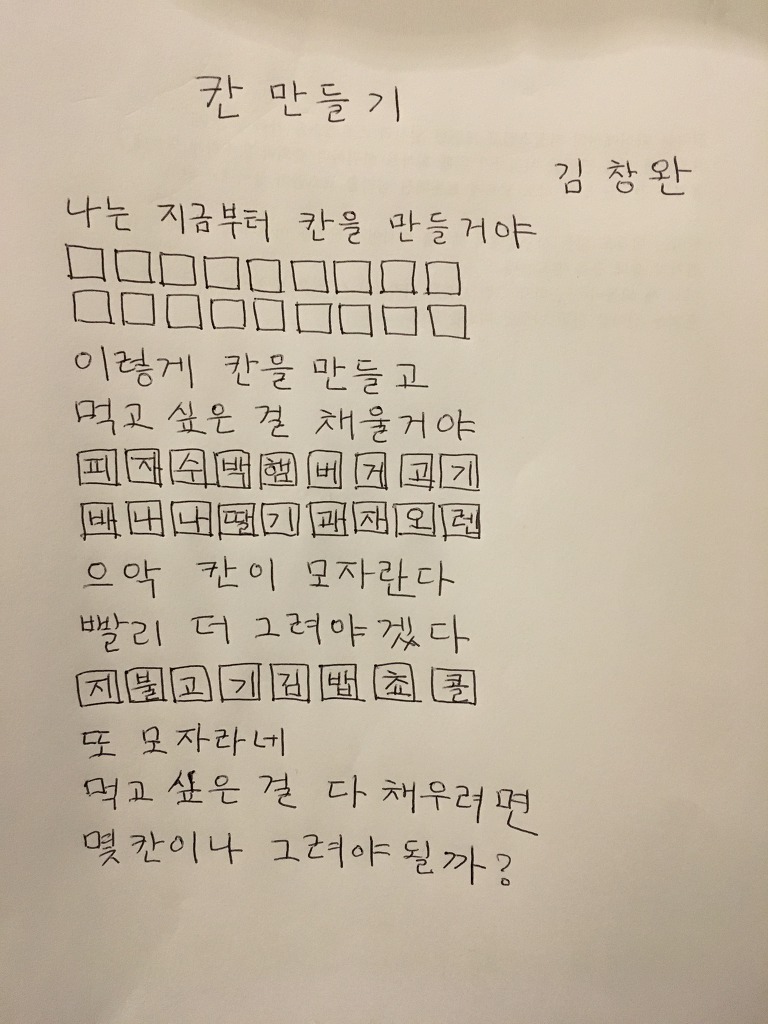 칸 만들기
김창완
나는 지금부터 칸을 만들거야
□□□□□□□□□
□□□□□□□□□
이렇게 칸을 만들고
먹고 싶은 걸 채울거야
피자수박햄버거고기
바나나딸기과자오렌
으악 칸이 모자란다
빨리 더 그려야겠다
지불고기김밥쵸콜
또 모자라네
먹고 싶은 걸 다 채우려면
몇칸이나 그려야될까?